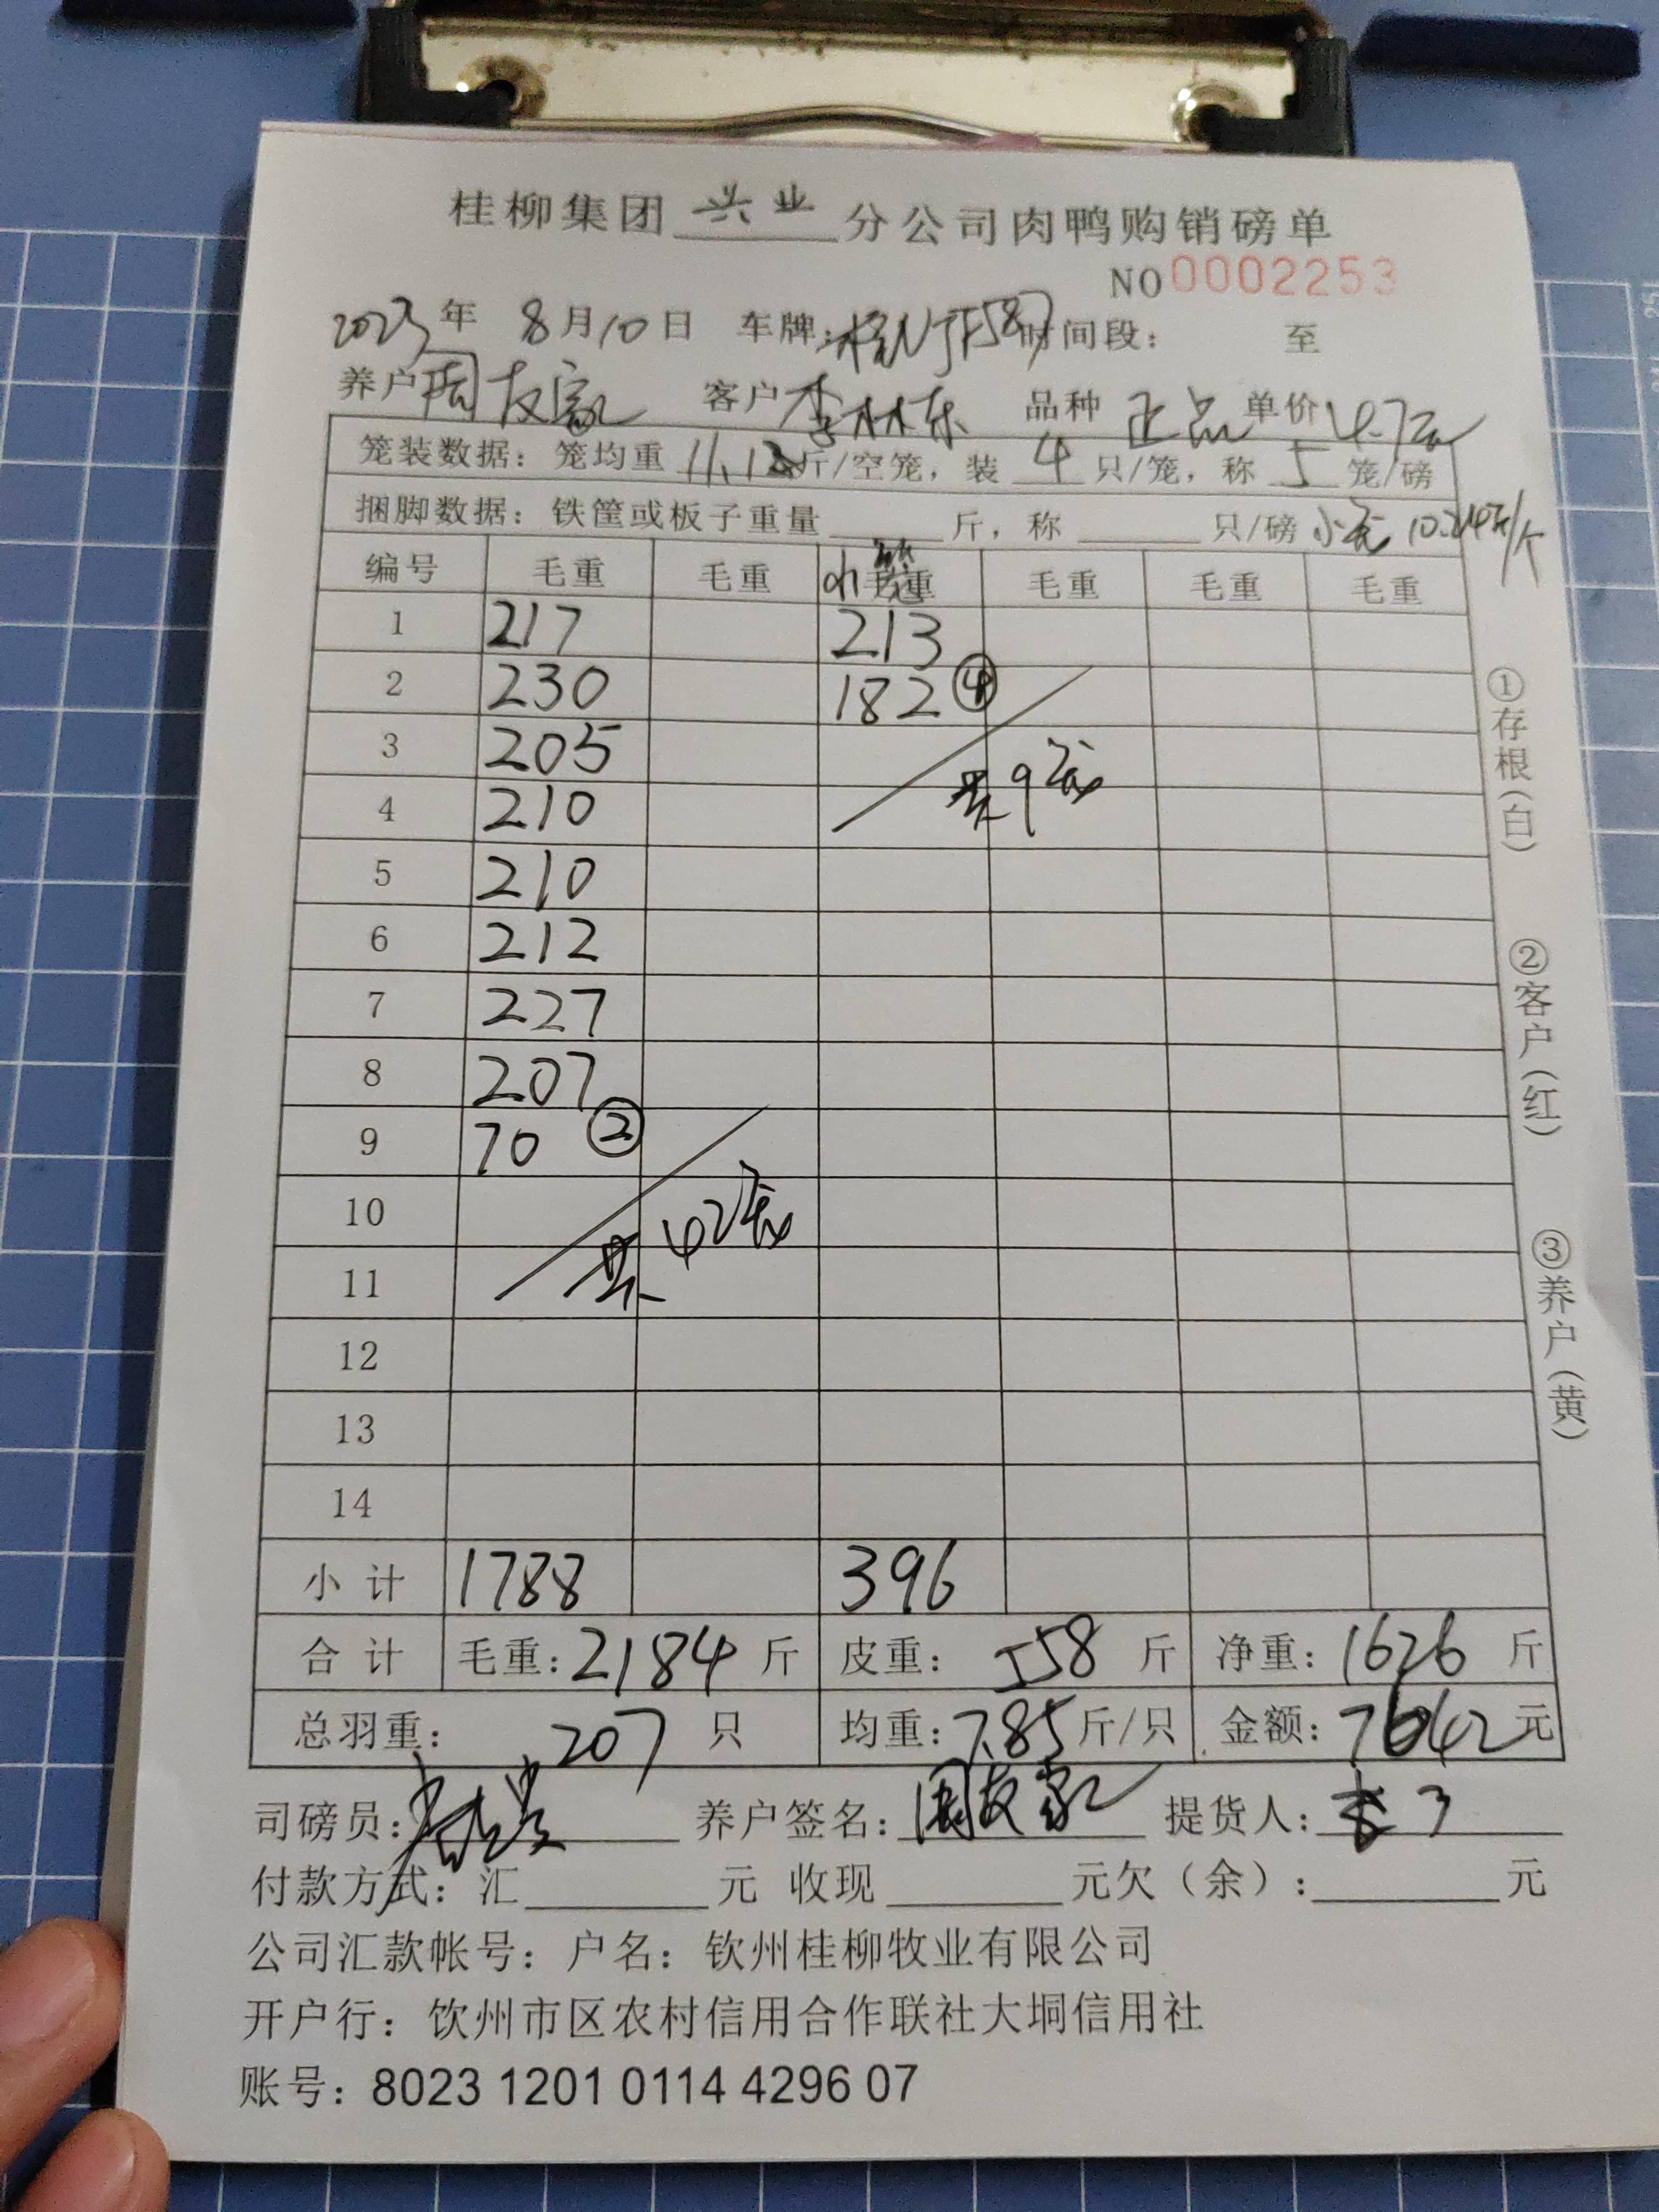 桂柳集团 兴业 分公司肉鸭购销磅单
NO 0002253
2023年 8月10日 车牌: 时间段: 至
养户 周友家 客户 李林东 品种 正品 单价 4.7元
笼装数据: 笼均重 11.12斤/空笼, 装 4 只/笼, 称 5 笼/磅
捆脚数据: 铁筐或板子重量 斤, 称 只/磅 小笼
编号 毛重 毛重 小笼 毛重 毛重 毛重 毛重
1 217 213
2 230 182 ④
3 205
4 210 共9笼
5 210
6 212
7 227
8 207
9 70 ②
10 共42笼
11
12
13
14
小计 1788 396
合计 毛重: 2184 斤 皮重: 558 斤 净重: 1626 斤
总羽重: 207 只 均重: 7.85 斤/只 金额: 7642 元
司磅员: 养户签名: 周友家 提货人: 李
付款方式: 汇 元 收现 元欠(余): 元
公司汇款帐号: 户名: 钦州桂柳牧业有限公司
开户行: 钦州市区农村信用合作联社大垌信用社
账号: 8023 1201 0114 4296 07
①存根(白)
②客户(红)
③养户(黄)